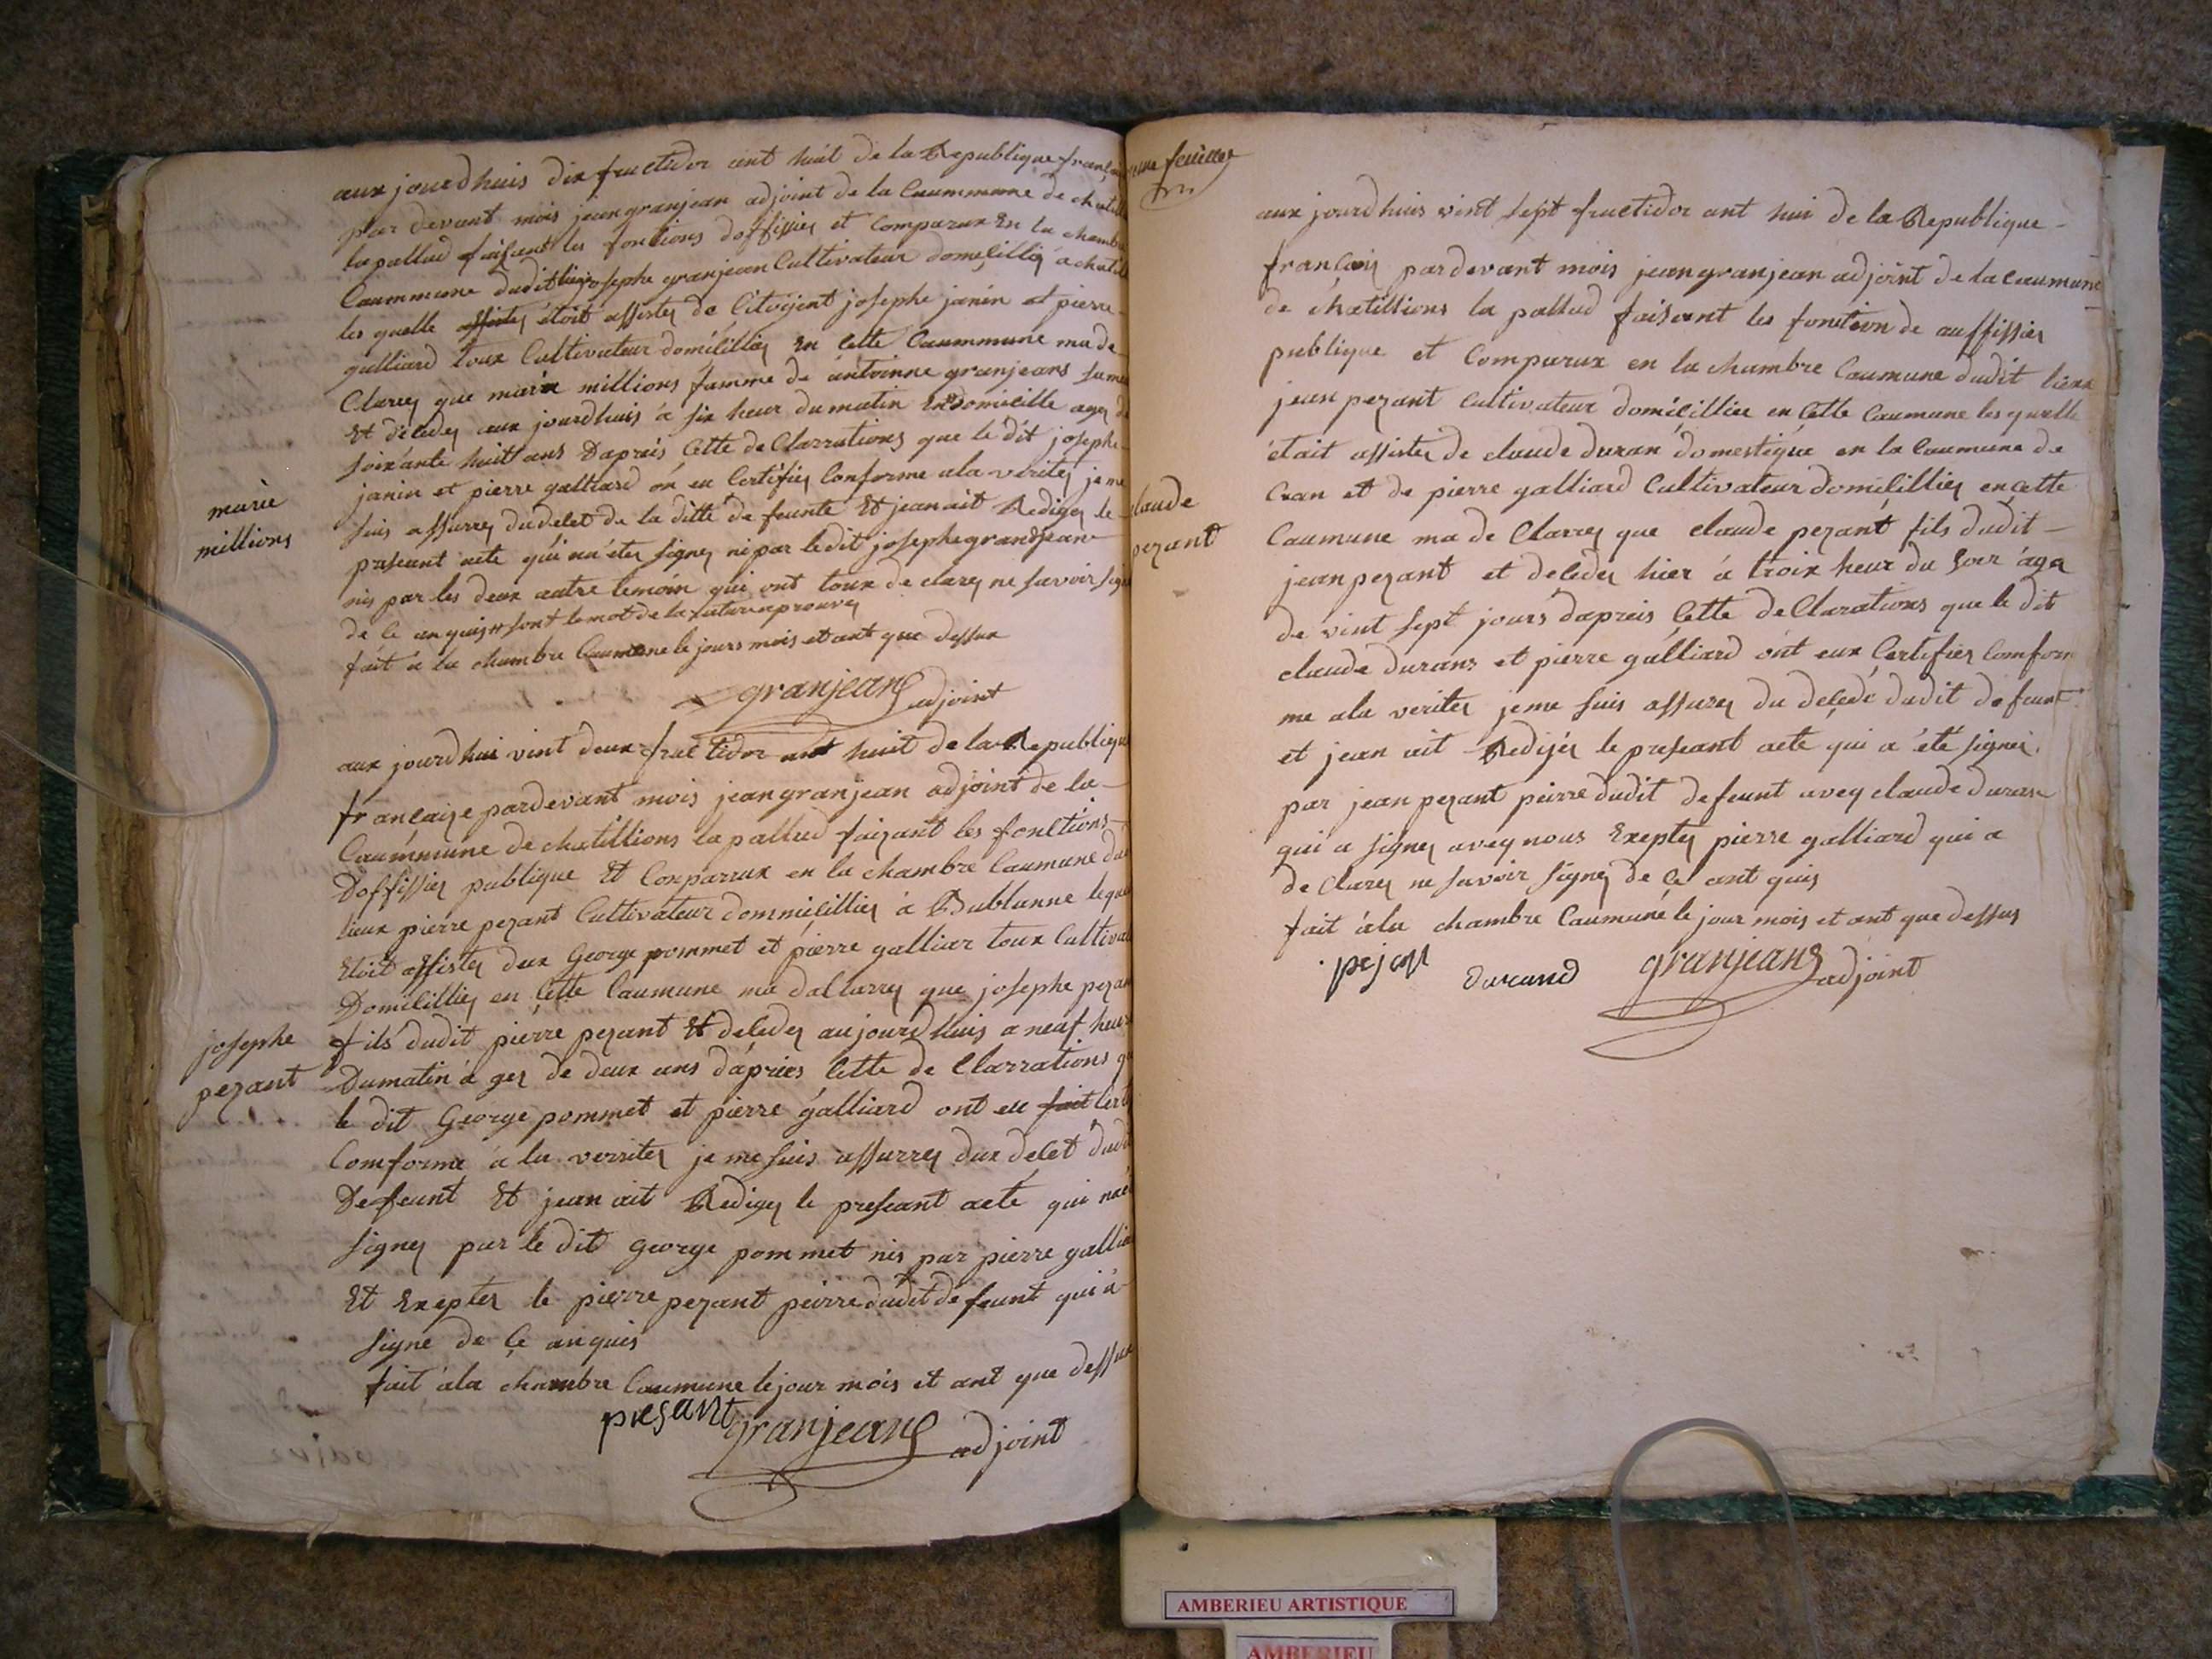 aux jourdhuis dix fructidor ant huit de la Republique
par devant mois jean granjean adjoint de la Caummune de
la pallud faisant les fonctions doffissier et Comparux En la
Caummune dudit lieu josephe granjean Cultivateur domecillié à
les quelle assistez étoit assistez de Citoyent josephe janin et pierre
galliard toux Cultivateur domicilliez en Cette Caummune ma de
Clarez que marie millions famme de antoinne granjeans
Et déledez aux jourdhuis à six heur du matin En domicille agez de
soixante huit ans Daprais Cette de Clarrations que le dit josephe
janin et pierre galliard on eu Certifiez Conforme ala veritez je me
suis assurrez du delet de la ditte de feunte Et jean ait Rediger le
marie
millions
preseant acte qui na étez signez ni par ledit josephe grandjean
nis par les deux autre temoin qui ont toux de clarez ne savoir
de ce anquis sont le mot de la rature aprouvez
fait a la chambre Caumune le jours mois et ant que dessux
granjean adjoint
aux jourdhui vint deux fructidor ant huit de la Republique
française pardevant mois jean granjean adjoint de la
Caummune de chatillions la pallud faizant les fonctions
Doffissier publique Et Comparrux en la chambre Caumune
lieux pierre pezant Cultivateur dommicilliez à Bublanne
Etoit assistez dux George pommet et pierre galliar toux
Domicilliez en Cette Caumune ma dallarrez que josephe
josephe
pezant
fils dudit pierre pezant Et deledez aujourdhuis a neuf heur
Dumatin à gez de deux ans dápries Cette de Clarrations
le dit George pommet et pierre galliard ont eu fait
Comforme à la verritez je me suis assurrez dux delet
Defeunt Et jean ait Rediger le preseant acte qui
signez par le dit George pommet nis par pierre
Et Exeptez le pierre pezant peirre dudit defeunt qui à
signe de ce anquis
fait àla chambre Caumune le jour mois et ant que dessux
presant granjean adjoint
feuillet
aux jourdhuis vint sept fructidor ant hui de la Republique
français pardevant mois jean granjean adjoint de la Caumune
de chatillions la pallud faisant les fonction de auffissier
publique et Comparux en la chambre Caumune dudit lieux
jean pezant Cultivateur domicilliee en Cette Caumune les quelle
était assistez de claude duran domestique en la Caumune de
Cran et de pierre galliard Cultivateur domicilliez en Cette
claude
pezant
Caumune ma de Clarrez que claude pezant fils dudit
jean pezant et deledez hier à troix heur du soir aga
de vint sept jours daprais Cette de Clarations que le dit
claude durans et pierre galliard ont eux Certifiez Comfor
me ala veritez je me suis assurez du deledé dudit defeunt
et jean ait Redijér le preseant acte qui a été signer
par jean pezant pierre dudit defeunt aveq claude duran
qui a signez aveq nous Exeptez pierre galliard qui a
de Clarez ne savoir signez de ce ant quis
fait àla chambre Caumune le jour mois et ant que dessus
durand granjean adjoint
AMBERIEU ARTISTIQUE
AMBERIEU